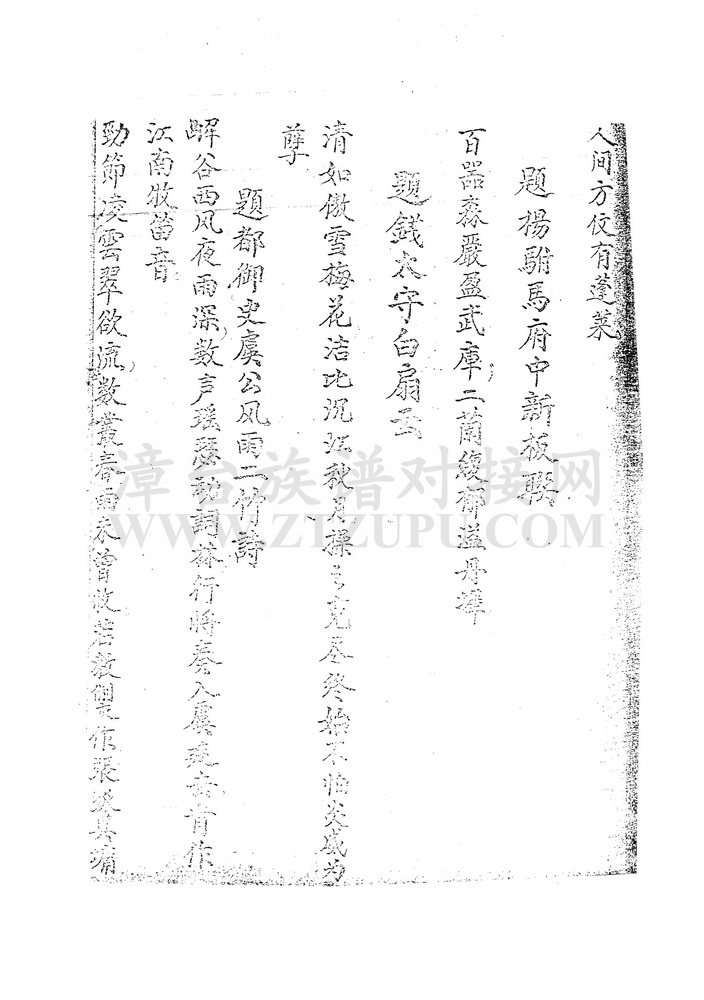 人间方伎有蓬莱
題楊駙馬府中新板聯
百器森嚴盈武庫二蘭馥郁溢丹墀
題錢太守白扇云
清如傲雪梅花洁比沉江秋月操之克尽终始不怕炎威为
孽
題都御史虞公风雨二竹詩
嶰谷西风夜雨深数声瑶瑟动詞林行将奏入虞廷去肯作
江南牧笛音
勁節凌雲翠欲流数叢春雨未曾收若教製作張
漳台族谱对接网
WWW.ZTZUPU.COM